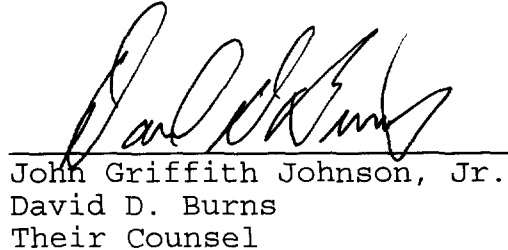 David D. Burns
John Griffith Johnson, Jr.
David D. Burns
Their Counsel